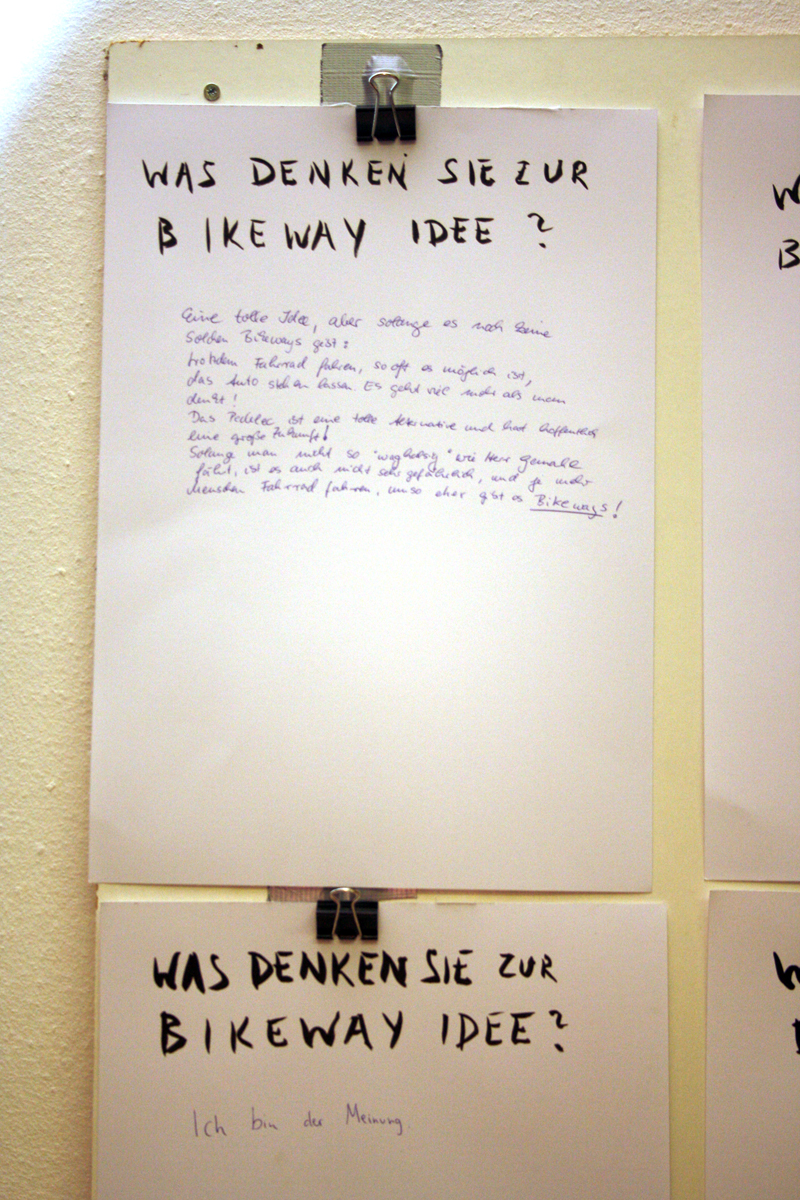 WAS DENKEN SIE ZUR
BIKEWAY IDEE ?
Eine tolle Idee, aber solange es noch keine
solchen Bikeways gibt:
trotzdem Fahrrad fahren, so oft es möglich ist,
das Auto stehen lassen. Es geht viel mehr als man
denkt!
Das Pedelec ist eine tolle Alternative und hat hoffentlich
eine große Zukunft!
Solange man nicht so wie Herr Gemahl
fährt, ist es auch nicht sehr gefährlich, und je mehr
Menschen Fahrrad fahren, umso eher gibt es Bikeways!
WAS DENKEN SIE ZUR
BIKEWAY IDEE?
Ich bin der Meinung.
W
B
W